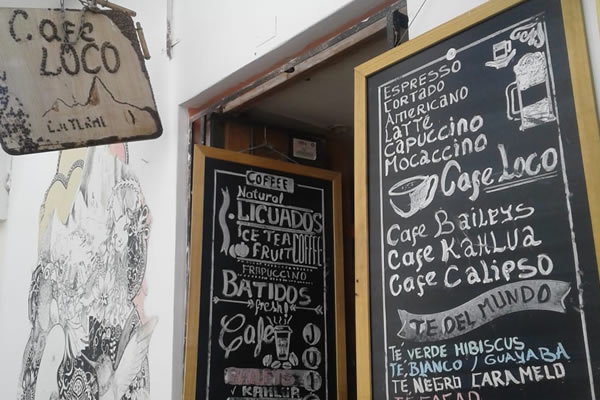 Cafe
LOCO
COFFEE
Natural
LICUADOS
ICE TEA
FRUIT COFFEE
FRAPUCCINO
BATIDOS
fresh!
Cafe
KAHLUA
ESPRESSO
CORTADO
AMERICANO
LATTE
CAPUCCINO
MOCACCINO
Cafe Loco
Cafe BAILEYS
Cafe KAHLUA
Cafe CALIPSO
TE DEL MUNDO
TÉ VERDE HIBISCUS
TÉ, BLANCO / GUAYABA
TÉ, NEGRO CARAMELO